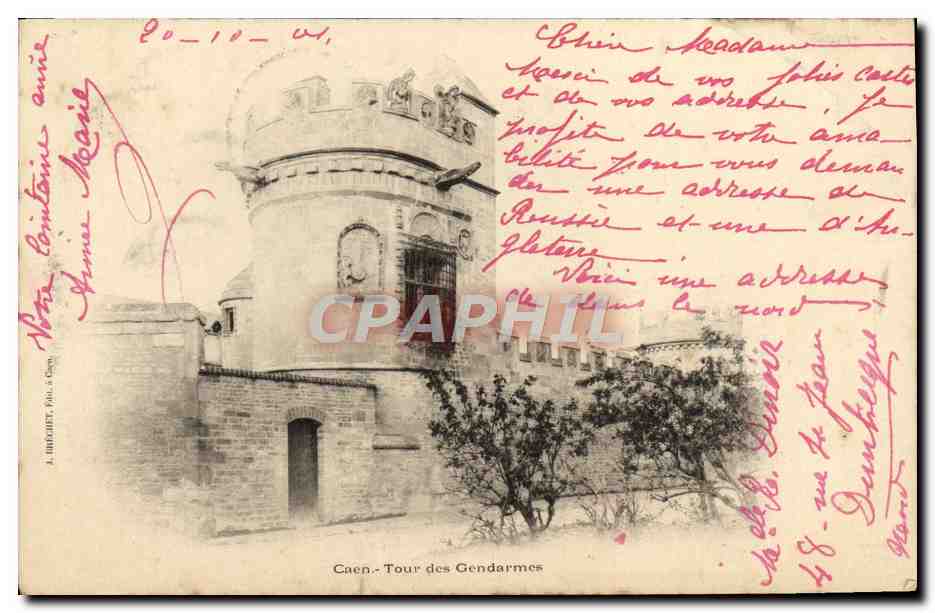 20-10-01.
Chère Madame
Merci de vos jolies cartes
et de vos addresse, Je
profite de votre ama-
bilité pour vous deman
der une addresse de
Roussie et une d'An-
gleterre
Voici une addresse
de dans le nord
Melle Denoir
48 rue St Jean
Dunkerque
Nord
Votre lointaine amie
Aimée Marie
CPAPHIL
J. BRÉCHET, Edit. à Caen.
Caen.- Tour des Gendarmes